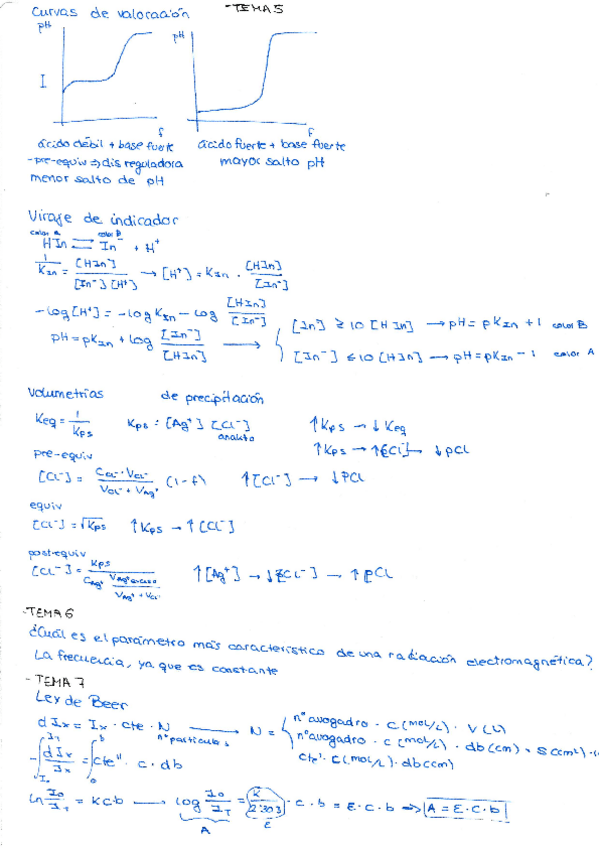 Curvas de valoración -TEMA 5
pH pH
I
f f
ácido débil + base fuerte ácido fuerte + base fuerte
-pre-equiv => dis reguladora mayor salto pH
menor salto de pH
Viraje de indicador
color A color B
HIn ⇌ In⁻ + H⁺
1/KIn = [HIn]/[In⁻][H⁺] → [H⁺] = KIn · [HIn]/[In⁻]
-log[H⁺] = -log KIn - log [HIn]/[In⁻]
pH = pKIn + log [In⁻]/[HIn] →
[In⁻] ≥ 10 [HIn] → pH = pKIn + 1 color B
[In⁻] ≤ 10 [HIn] → pH = pKIn - 1 color A
Volumetrías de precipitación
Keq = 1/Kps Kps = [Ag⁺] [Cl⁻] ↑Kps → ↓Keq
analito
↑Kps → ↑[Cl⁻] → ↓pCl
pre-equiv
[Cl⁻] = CCl⁻ · VCl⁻ / VCl⁻ + VAg⁺ (1-f) ↑[Cl⁻] → ↓pCl
equiv
[Cl⁻] = √Kps ↑Kps → ↑[Cl⁻]
postequiv
[Cl⁻] = Kps / CAg⁺ VAg⁺ exceso / VAg⁺ + VCl⁻ ↑[Ag⁺] → ↓[Cl⁻] → ↑pCl
-TEMA 6
¿Cuál es el parámetro más característico de una radiación electromagnética?
La frecuencia, ya que es constante
- TEMA 7
Ley de Beer
dIx = Ix · cte · N → N =
nº partículas
nº avogadro · C (mol/L) · V (L)
nº avogadro · c (mol/L) · db (cm) · S (cm²)
cte' · C (mol/L) · db (cm)
-∫ I₀ IT dIx/Ix = ∫ 0 b cte'' · c · db
ln I₀/IT = kcb → log I₀/IT = K/2.303 · c · b = ε · c · b => A = ε · c · b
A ε